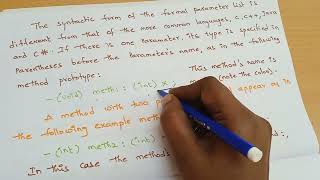 The syntactic form of the formal parameter list is
different from that of the more common languages, C, C++, Java
and C#. If there is one parameter, its type is specified in
Parentheses before the parameter's name, as in the following
method prototype:
- (void) meth1: (int) x;
This method's name is
(note the colon).
A method with two
appear as in
the following example meth
- (int) meth2: (int)
In this case the method's